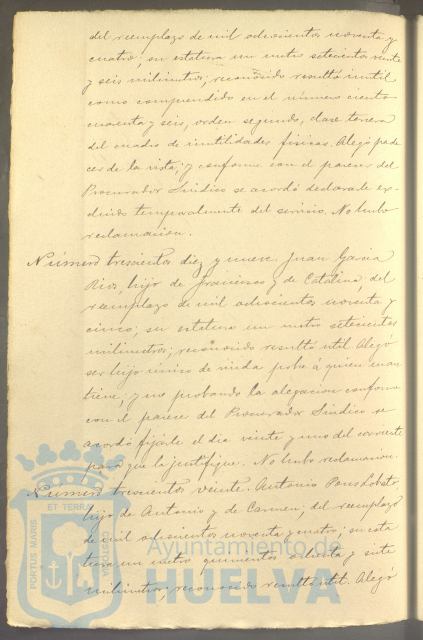 del reemplazo de mil ochocientos noventa y
cuatro; su estatura un metro setecientos veinte
y seis milimetros; reconocido resultó inutil
como comprendido en el número ciento
cuarenta y seis, orden segundo, clase tercera
del cuadro de inutilidades fisicas. Alegó pade
cer de la vista; y conforme con el parecer del
Procurador Sindico se acordó declararle ex-
cluido temporalmente del servicio. No hubo
reclamacion.
Número trescientos diez y nueve. Juan Garcia
Rios, hijo de Francisco y de Catalina, del
reemplazo de mil ochocientos noventa y
cinco; su estatura un metro setecientos
milimetros; reconocido resultó util. Alegó
ser hijo unico de viuda pobre á quien man
tiene; y no probando la alegacion conforme
con el parecer del Procurador Sindico se
acordó fijarle el dia veinte y uno del corriente
para que la justifique. No hubo reclamacion.
Número trescientos veinte. Antonio Pons Lobato,
hijo de Antonio y de Carmen, del reemplazo
de mil ochocientos noventa y cuatro; su esta
tura un metro quinientos y siete
milimetros; reconocido resultó util. Alegó
PORTUS MARIS ET TERRÆ CUSTODIA
Ayuntamiento de
HUELVA